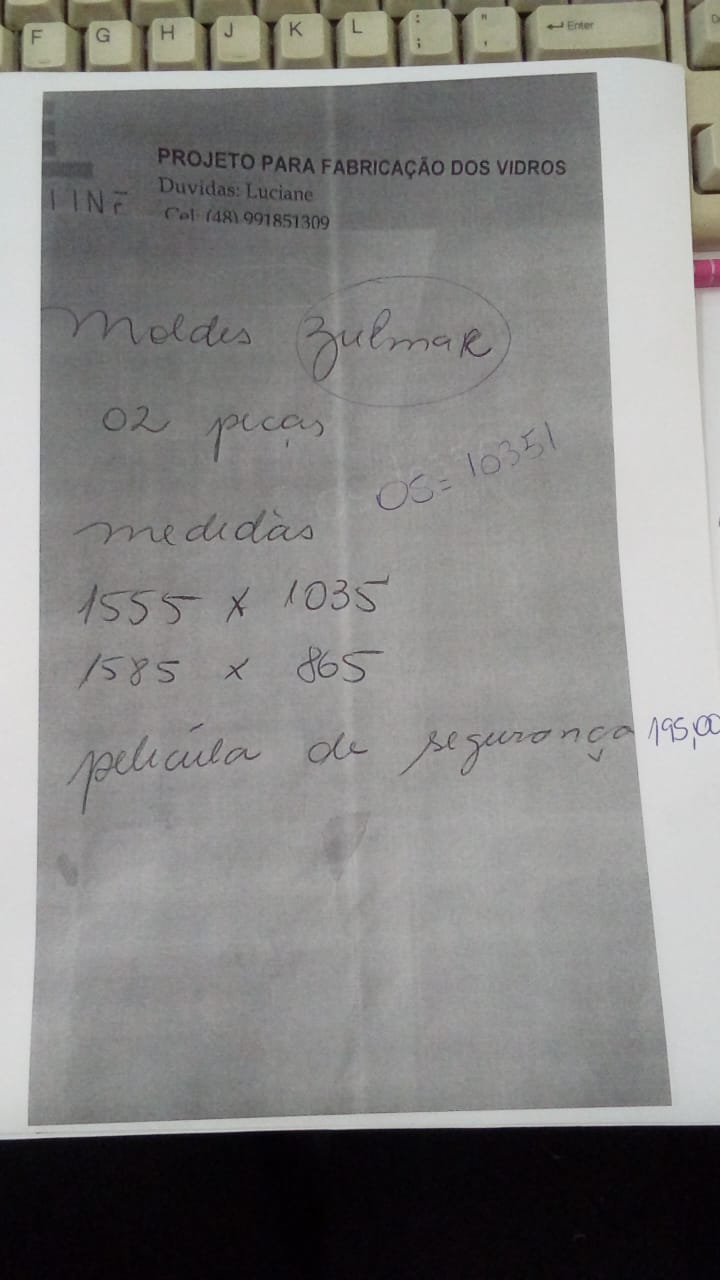 PROJETO PARA FABRICAÇÃO DOS VIDROS
Duvidas: Luciane
Cel: (48) 991851309
Moldes Zulmar
02 peças
OS= 10351
medidas
1555 x 1035
1585 x 865
pelicúla de segurança 195,00
F G H J K L : ; " , Enter